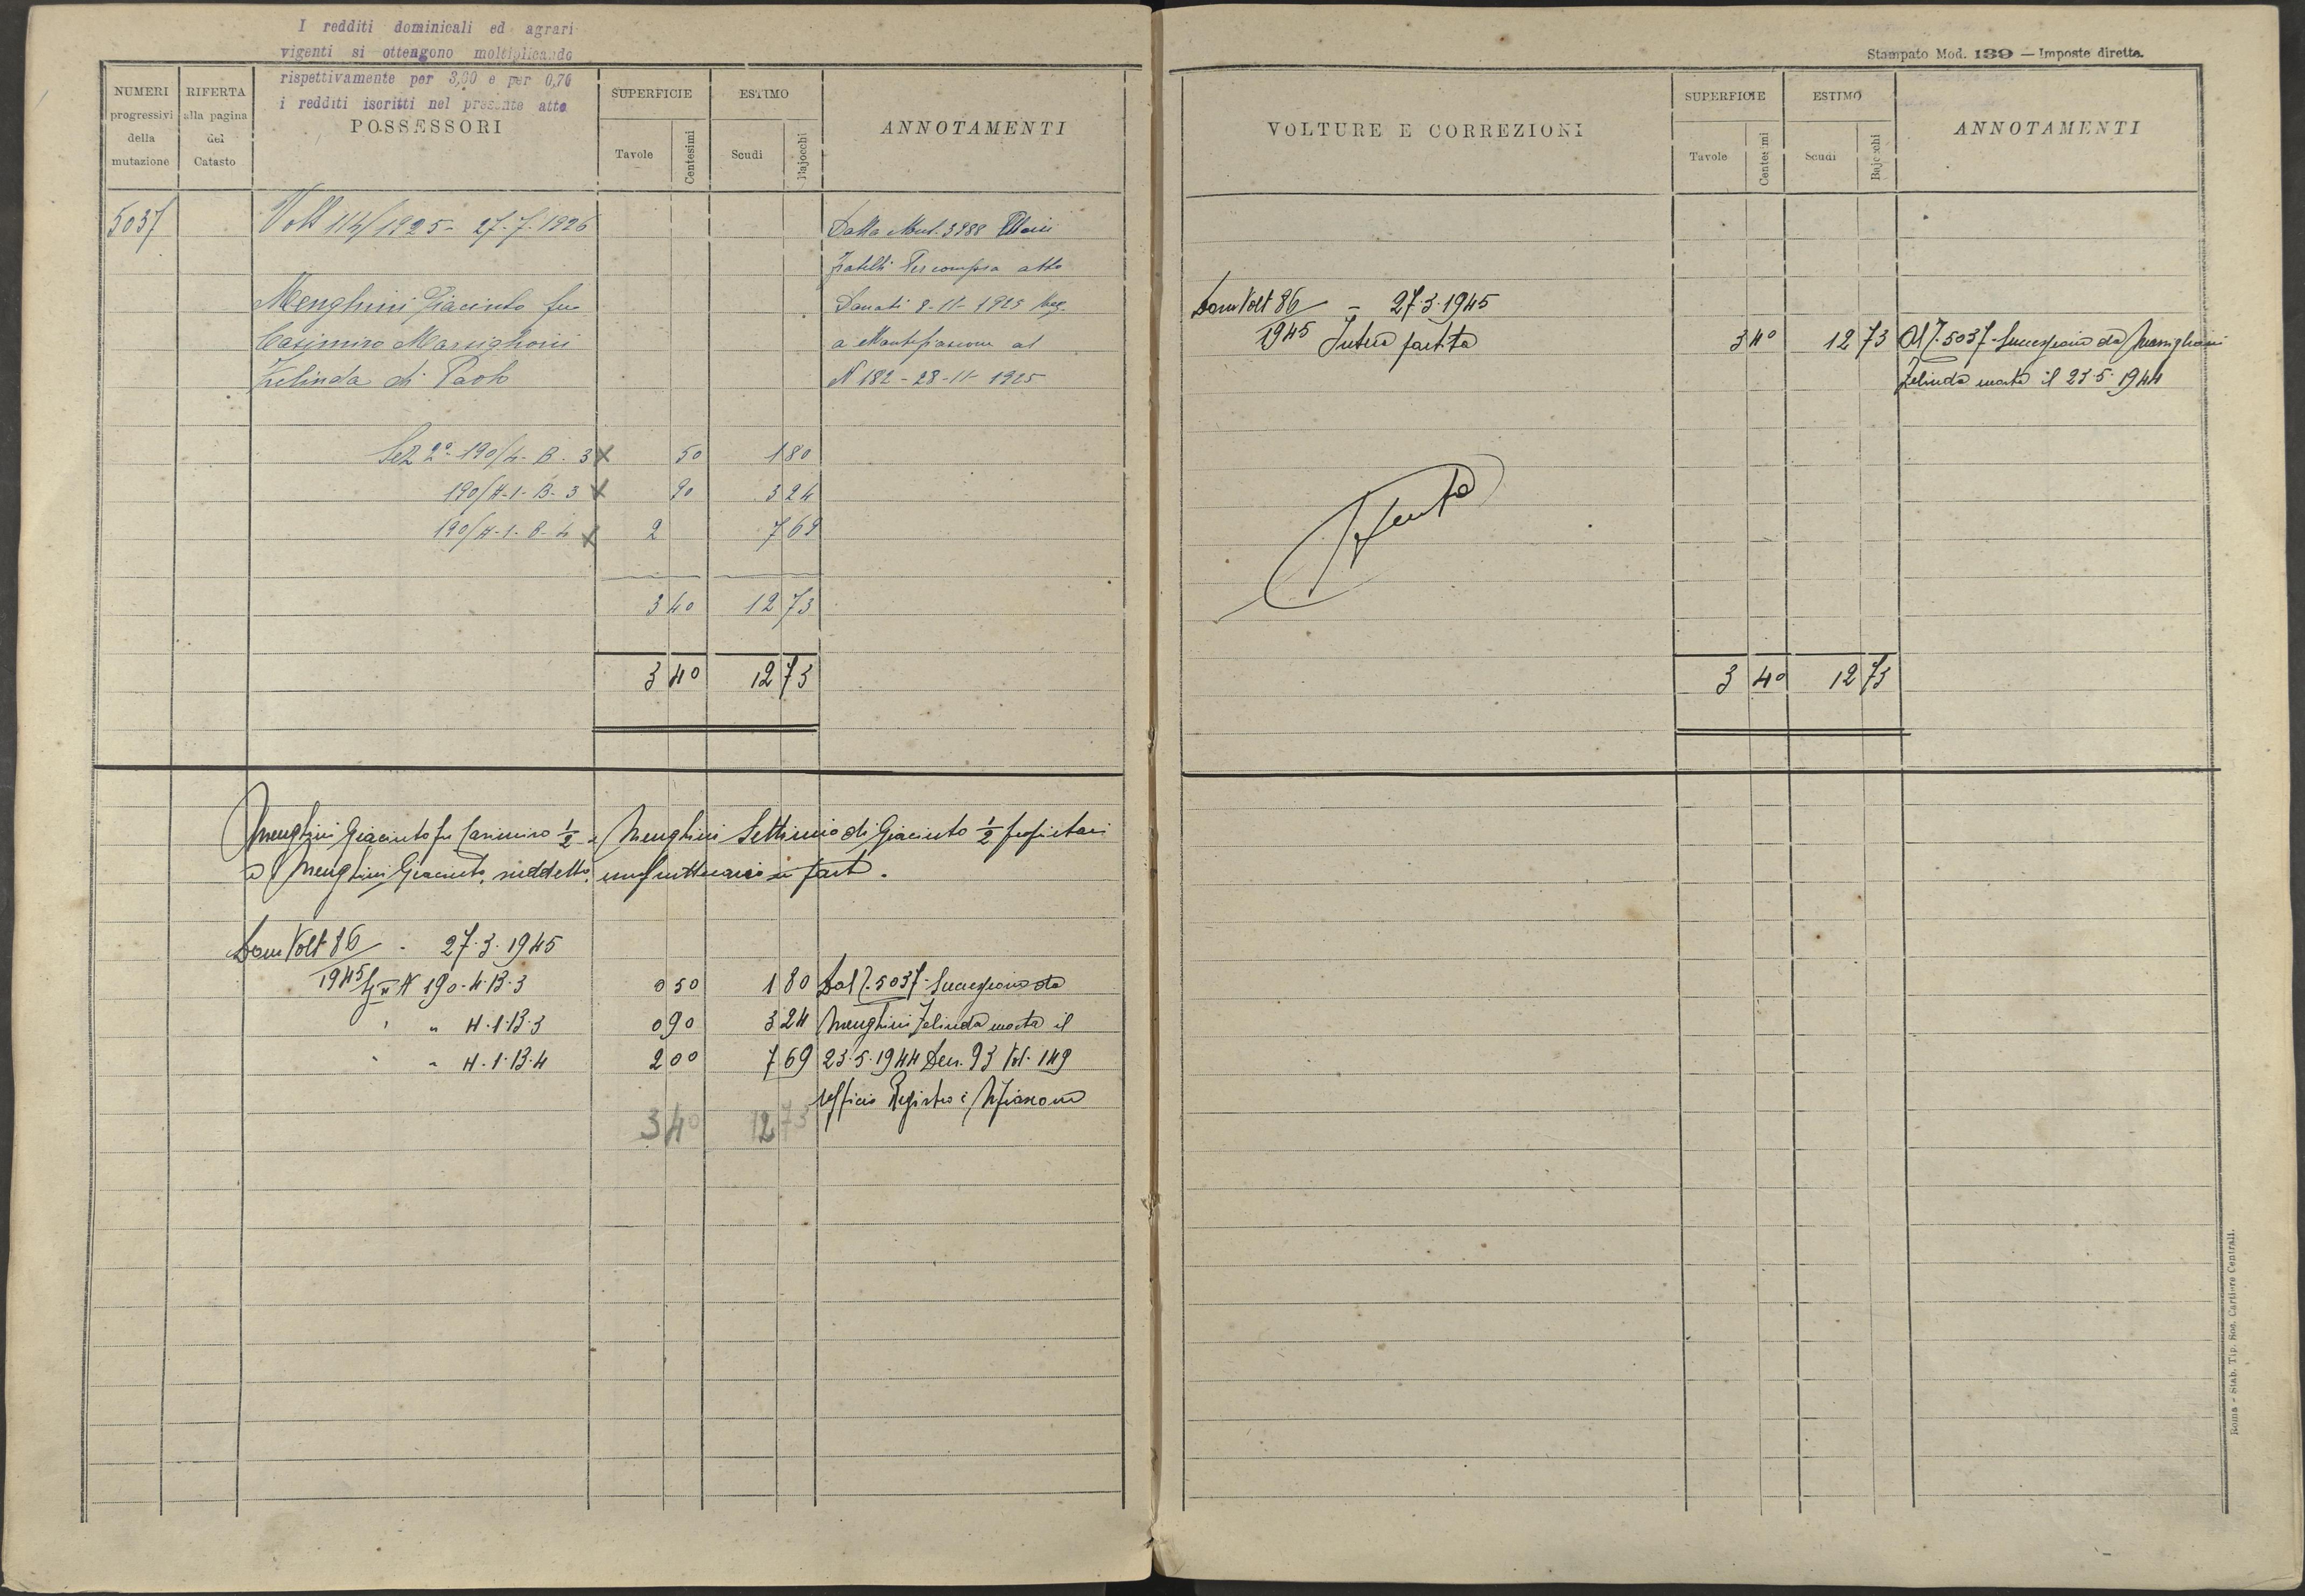 I redditi dominicali ed agrari
vigenti si ottengono moltiplicando
rispettivamente per 3,00 e per 0,70
i redditi iscritti nel presente atto
NUMERI progressivi della mutazione
RIFERTA alla pagina del Catasto
POSSESSORI
SUPERFICIE
Tavole Centesimi
ESTIMO
Scudi Bajocchi
ANNOTAMENTI
5037 Volt 114/1925 - 27.7.1926 Dalla Mut. 3988
fratelli Per compra atto
Menghini Giacinto fu Donati 8-11-1925 Reg.
Casimiro Marsiglioni a Montefiascone al
Zelinda di Paolo N 182 - 28-11-1925
Sez 2ª 190/4-B-3 x 50 1 80
190/4-1-B-3 x 90 3 24
190/4-1-B-4 x 2 7 69
3 40 12 73
3 40 12 73
Menghini Giacinto fu Casimiro 1/2 e Menghini Settimio di Giacinto 1/2 proprietari
e Menghini Giacinto, suddetto, usufruttuario in part.
Dom Volt 86/1945 - 27.3.1945
Sez II N 190-4-B-3 0 50 1 80 Dal P. 5037 Successione da
" " 4.1.B.3 0 90 3 24 Menghini Zelinda morta il
" " 4.1.B.4 2 00 7 69 23.5.1944 Den. 93 Vol. 149
Ufficio Registro di Mfiascone
3 40 12 73
Stampato Mod. 139 — Imposte dirette.
VOLTURE E CORREZIONI
SUPERFICIE
Tavole Centesimi
ESTIMO
Scudi Bajocchi
ANNOTAMENTI
Dom Volt 86/1945 - 27.3.1945
Intera partita 3 40 12 73 Al P. 5037 Successione da Marsiglioni
Zelinda morta il 23.5.1944
3 40 12 73
Roma - Stab. Tip. Soc. Cartiere Centrali.